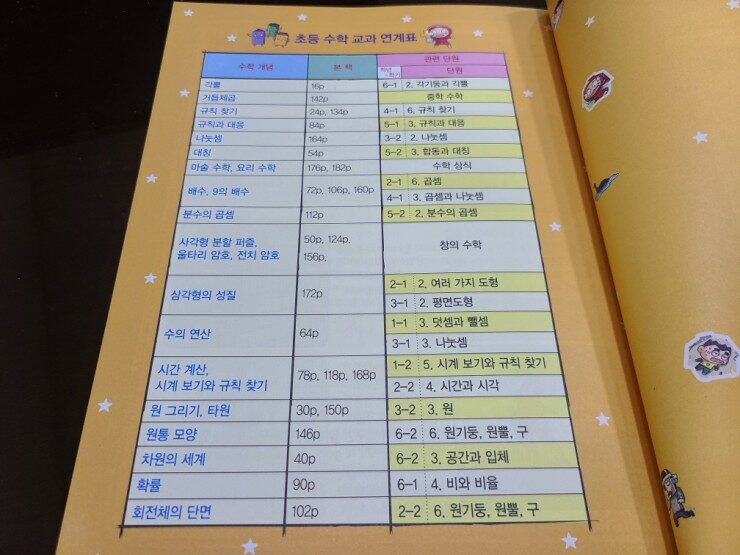 초등 수학 교과 연계표
수학 개념 본 책 관련 단원
학년-학기 단원
각뿔 16p 6-1 2. 각기둥과 각뿔
거듭제곱 142p 중학 수학
규칙 찾기 24p, 134p 4-1 6. 규칙 찾기
규칙과 대응 84p 5-1 3. 규칙과 대응
나눗셈 164p 3-2 2. 나눗셈
대칭 54p 5-2 3. 합동과 대칭
마술 수학, 요리 수학 176p, 182p 수학 상식
배수, 9의 배수 72p, 106p, 160p 2-1 6. 곱셈
4-1 3. 곱셈과 나눗셈
분수의 곱셈 112p 5-2 2. 분수의 곱셈
사각형 분할 퍼즐, 50p, 124p, 창의 수학
울타리 암호, 전치 암호 156p,
삼각형의 성질 172p 2-1 2. 여러 가지 도형
3-1 2. 평면도형
수의 연산 64p 1-1 3. 덧셈과 뺄셈
3-1 3. 나눗셈
시간 계산, 78p, 118p, 168p 1-2 5. 시계 보기와 규칙 찾기
시계 보기와 규칙 찾기 2-2 4. 시간과 시각
원 그리기, 타원 30p, 150p 3-2 3. 원
원통 모양 146p 6-2 6. 원기둥, 원뿔, 구
차원의 세계 40p 6-2 3. 공간과 입체
확률 90p 6-1 4. 비와 비율
회전체의 단면 102p 2-2 6. 원기둥, 원뿔, 구